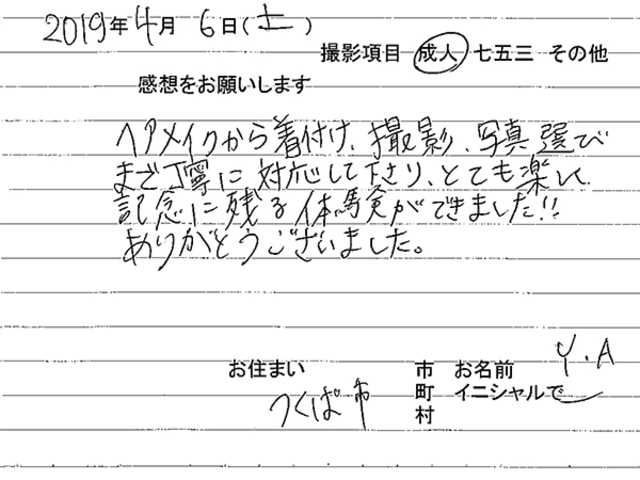 2019年4月6日(土)
撮影項目 成人 七五三 その他
感想をお願いします
ヘアメイクから着付け、撮影、写真選び
まで丁寧に対応して下さり、とても楽しく
記念に残る体験ができました!!
ありがとうございました。
お住まい つくば市 市町村
お名前 イニシャルで Y.A